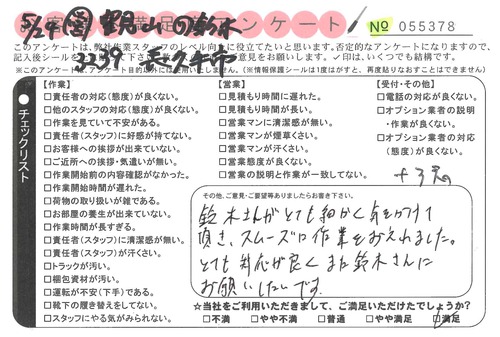 お客様満足度アンケート № 055378
5/24
2239 長久手市
このアンケートは、弊社作業スタッフのレベル向上に役立てたいと思います。否定的なアンケートになりますので、
記入後シールを
意見をお願いします。✓印は、いくつでも結構です。
(※このアンケート
使用いたしません)(※情報保護シールは1度はがすと、再度貼りなおすことはできません)
チェックリスト
【作業】
□責任者の対応(態度)が良くない。
□他のスタッフの対応(態度)が良くない。
□作業を見ていて不安がある。
□責任者(スタッフ)に好感が持てない。
□お客様への挨拶が出来ていない。
□ご近所への挨拶・気遣いが無い。
□作業開始前の内容確認がなかった。
□作業開始時間が遅れた。
□荷物の取り扱いが雑である。
□お部屋の養生が出来ていない。
□作業時間が長すぎる。
□責任者(スタッフ)に清潔感が無い。
□責任者(スタッフ)が汗くさい。
□トラックが汚い。
□梱包資材が汚い。
□運転が不安(下手)である。
□靴下の履き替えをしてない。
□スタッフにやる気がみられない。
【営業】
□見積もり時間に遅れた。
□見積もり時間が長い。
□営業マンに清潔感が無い。
□営業マンが煙草くさい。
□営業マンが汗くさい。
□営業態度が良くない。
□営業の説明と作業が一致してない。
【受付・その他】
□電話の対応が良くない。
□オプション業者の説明
・作業が良くない。
□オプション業者の対応
(態度)が良くない。
その他、ご意見・ご要望等ありましたらお書き下さい。
鈴木さんがとても細かく気をつけて
頂き、スムーズに作業をおえれました。
とても対応が良くまた鈴木さんに
お願いしたいです。
☆当社をご利用いただきまして、ご満足いただけたでしょうか?
□不満 □やや不満 □普通 □やや満足 □満足